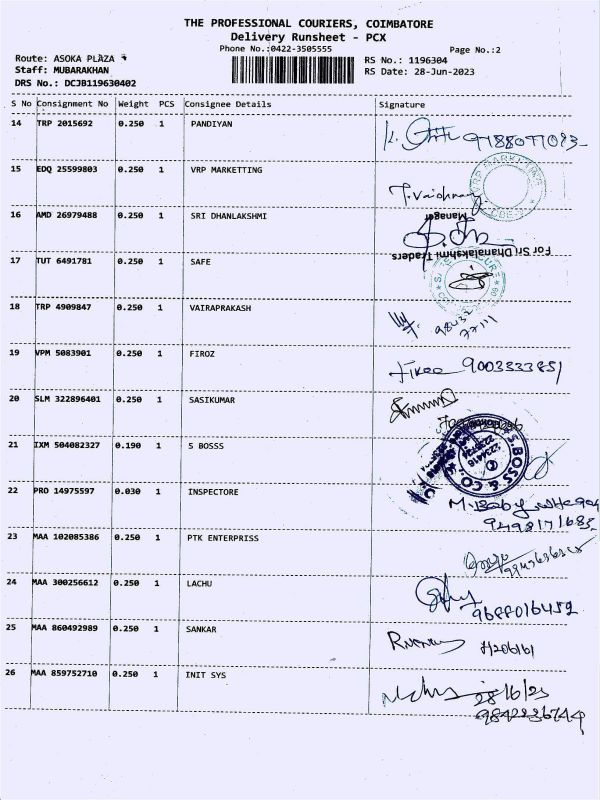 THE PROFESSIONAL COURIERS, COIMBATORE
Delivery Runsheet - PCX
Phone No.:0422-3505555 Page No.:2
Route: ASOKA PLAZA
Staff: MUBARAKHAN
DRS No.: DCJB119630402
RS No.: 1196304
RS Date: 28-Jun-2023
S No Consignment No Weight PCS Consignee Details Signature
14 TRP 2015692 0.250 1 PANDIYAN
15 EDQ 25599803 0.250 1 VRP MARKETTING
VRP MARKETING
T. Vaishnavi
16 AMD 26979488 0.250 1 SRI DHANLAKSHMI
For Sri Dhanalakshmi Traders
Manager
17 TUT 6491781 0.250 1 SAFE
18 TRP 4909847 0.250 1 VAIRAPRAKASH
19 VPM 5083901 0.250 1 FIROZ
9003333851
20 SLM 322896401 0.250 1 SASIKUMAR
21 IXM 504082327 0.190 1 S BOSSS
S.BOSS & CO.
22 PRO 14975597 0.030 1 INSPECTORE
M. Baby
9498171685
23 MAA 102085386 0.250 1 PTK ENTERPRISS
24 MAA 300256612 0.250 1 LACHU
9688016452
25 MAA 860492989 0.250 1 SANKAR
26 MAA 859752710 0.250 1 INIT SYS
28/6/23
9842236744